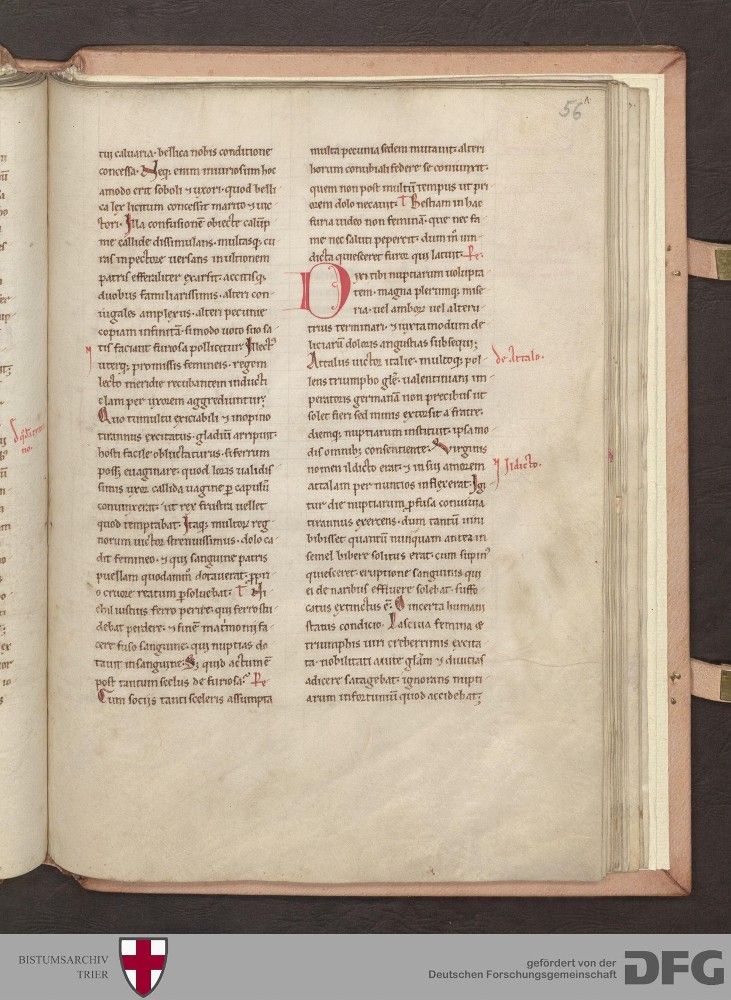 56
tui caluaria· bellica nobis conditione
concessa· Neq; enim iniuriosum hoc
amodo erit soboli ⁊ uxori· quod belli
ca lex licitum concessit marito ⁊ uic
tori· Illa confusionẽ obiecte calũp
nie callide dissimulans· multasq; cu
ras in pectore uersans in ultionem
patris efferaliter exarsit· accitisq;
duobus familiarissimis· alteri con
iugales amplexus· alteri pecunie
copiam infinitã· si modo uoto suo sa
tis faciant furiosa pollicetur· Illecti
uterq; promissis femineis· regem
lecto meridie recubantem inducti
clam per uxorem aggrediuntur;
Quo tumultu exiciabili ⁊ inopino
tirannus excitatus· gladiũ arripuit·
hosti facile obluctaturus· si ferrum
posset euaginare· quod loris ualidis
simis uxor callida uagine ꝑ capulũ
conuinxerat· ut rex frustra uellet
quod temptabat· Itaq; multorũ reg
norum uictor strenuissimus· dolo ca
dit femineo· ⁊ qui sanguine patris
puellam quodammodo dotauerat· ꝓpri
o cruore reatum ꝑsoluebat· T Ni
chil iustius ferro perire· qui ferro stu
debat perdere· ⁊ finẽ matrimonii fa
cere fuso sanguine· qui nuptias do
tauit in sanguine· Sꝫ quid actum ẽ
post tantum scelus de furiosa? Re
Cum sociis tanti sceleris assumpta
multa pecunia sedem mutauit· alteri
horum connubiali federe se coniunxit·
quem non post multũ tempus ut pri
orem dolo necauit· T Bestiam in hac
furia uideo non feminã· que nec fa
me nec saluti pepercit· dum
dicta quiesceret furor qui latuit· Re·
Dixi tibi nuptiarum uolupta
tem· magna plerumq; mise
ria· uel amborũ uel alteru
trius terminari· ⁊ iuxta modum de
liciarũ doloris angustias subsequi;
Attalus uictor italie· multoq; pol
lens triumpho glẽ· ualentiniani im
peratoris germanã non precibus ut
solet fieri sed minis extorsit a fratre·
diemq; nuptiarum instituit· ipsa mo
dis omnibꝫ consentiente· Virginis
nomen ildicto erat· ⁊ in sui amorem
attalam per nuntios inflexerat· Igi
tur die nuptiarum ꝓfusa conuiuia
tirannus exercens· dum tantũ uini
bibisset quantũ nunquam antea in
semel bibere solitus erat· cum supinꝰ
quiesceret· eruptione sanguinis qui
ei de naribus effluere solebat· suffo
catus extinctus ẽ· O incerta humani
status condicio· Lasciua femina de
triumphis uiri creberrimis excita
ta· nobilitati auite glãm ⁊ diuicias
adicere satagebat· ignorans nupti
arum infortuniũ quod accidebat;
de Attalo·
Ildicto·
BISTUMSARCHIV
TRIER
gefördert von der
Deutschen Forschungsgemeinschaft
DFG